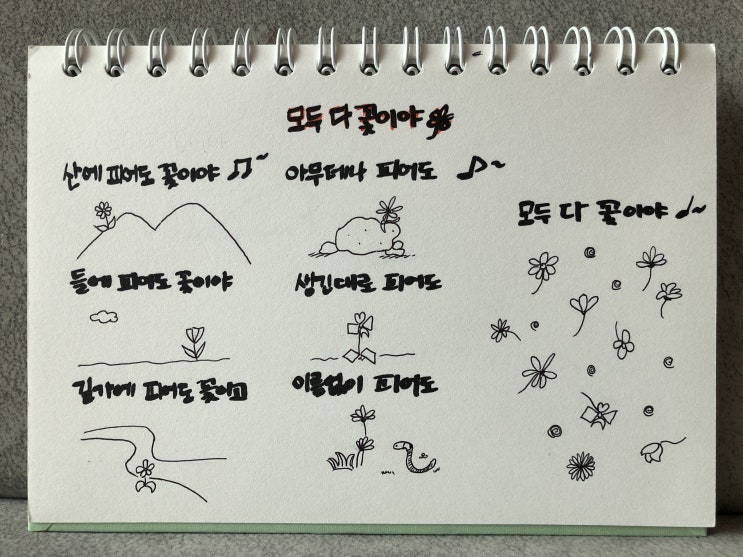 모두 다 꽃이야
산에 피어도 꽃이야
들에 피어도 꽃이야
길가에 피어도 꽃이고
아무데나 피어도
생긴대로 피어도
이름없이 피어도
모두 다 꽃이야